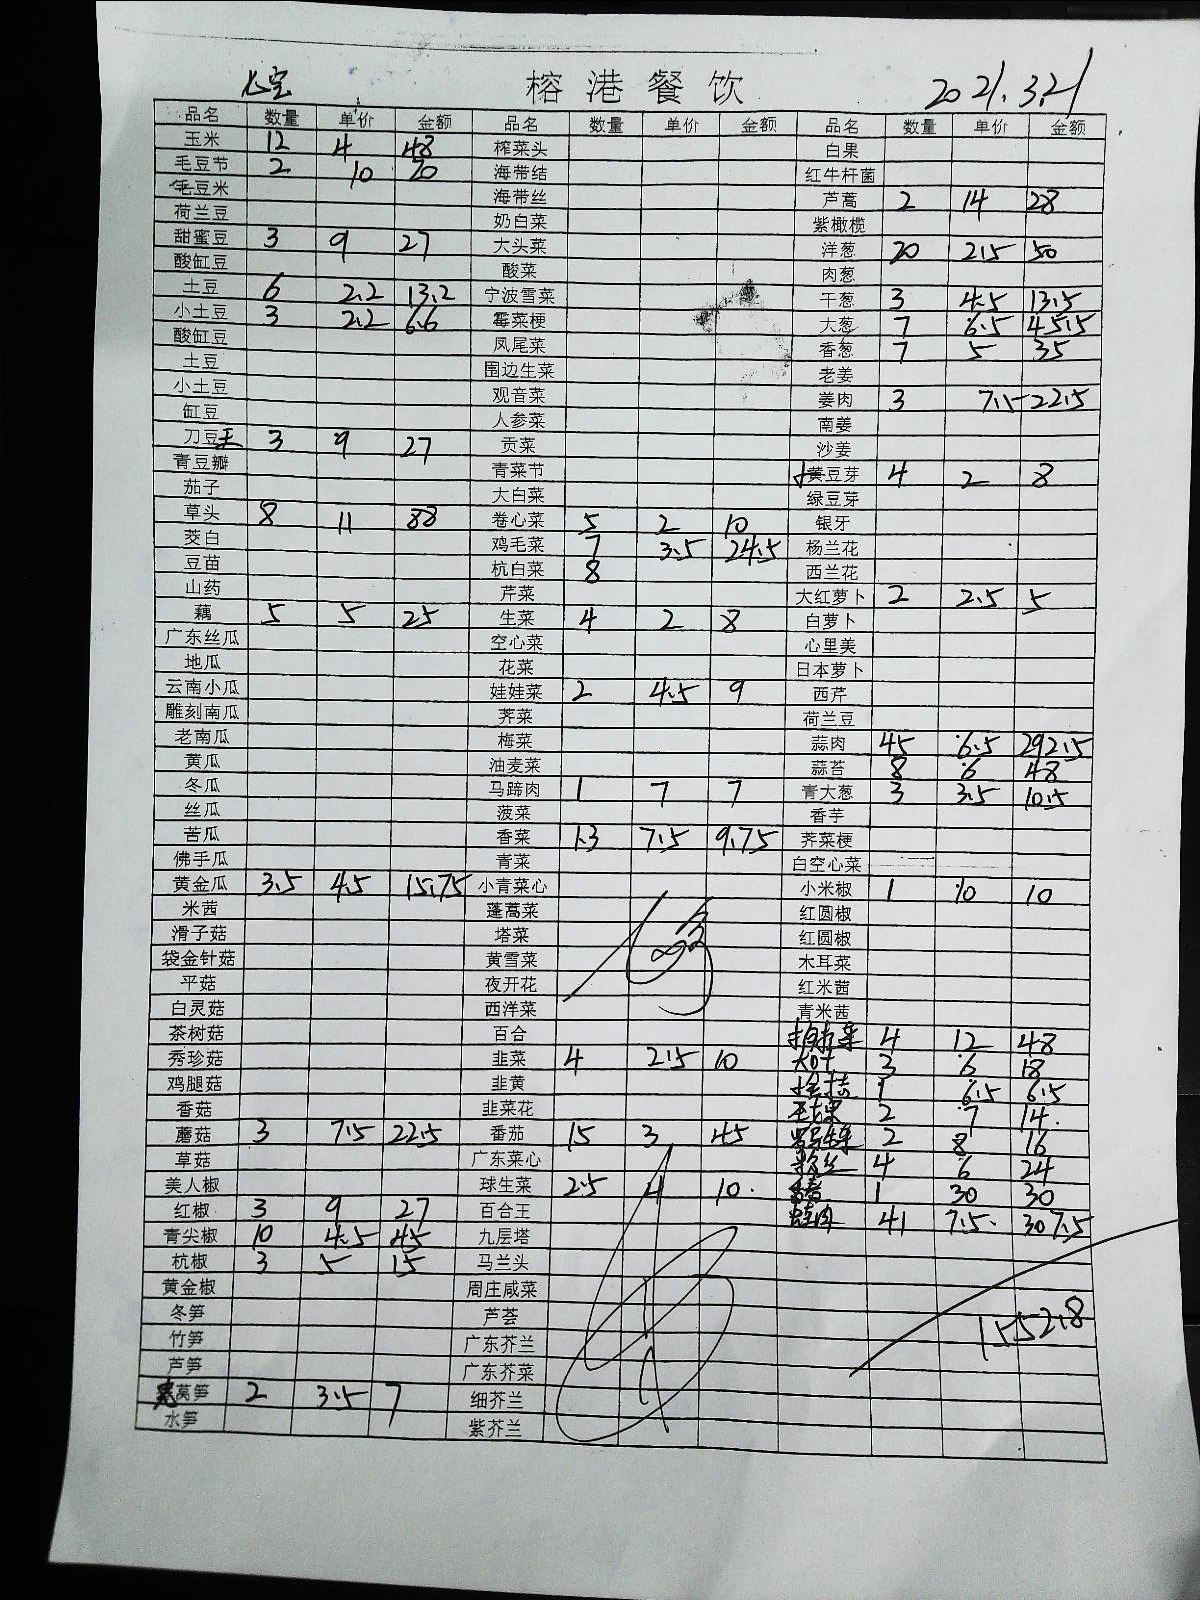 榕港餐饮 2021.3.21
品名 数量 单价 金额 品名 数量 单价 金额 品名 数量 单价 金额
玉米 12 4 48 榨菜头 白果
毛豆节 2 10 20 海带结 红牛杆菌
毛豆米 海带丝 芦蒿 2 14 28
荷兰豆 奶白菜 紫橄榄
甜蜜豆 3 9 27 大头菜 洋葱 20 2.5 50
酸缸豆 酸菜 肉葱
土豆 6 2.2 13.2 宁波雪菜 干葱 3 4.5 13.5
小土豆 3 2.2 6.6 霉菜梗 大葱 7 6.5 45.5
酸缸豆 凤尾菜 香葱 7 5 35
土豆 围边生菜 老姜
小土豆 观音菜 姜肉 3 7.5 22.5
缸豆 人参菜 南姜
刀豆 3 9 27 贡菜 沙姜
青豆瓣 青菜节 黄豆芽 4 2 8
茄子 大白菜 绿豆芽
草头 8 11 88 卷心菜 5 2 10 银牙
茭白 鸡毛菜 7 3.5 24.5 杨兰花
豆苗 杭白菜 8 西兰花
山药 芹菜 大红萝卜 2 2.5 5
藕 5 5 25 生菜 4 2 8 白萝卜
广东丝瓜 空心菜 心里美
地瓜 花菜 日本萝卜
云南小瓜 娃娃菜 2 4.5 9 西芹
雕刻南瓜 荠菜 荷兰豆
老南瓜 梅菜 蒜肉 45 6.5 292.5
黄瓜 油麦菜 蒜苔 8 6 48
冬瓜 马蹄肉 1 7 7 青大葱 3 3.5 10.5
丝瓜 菠菜 香芋
苦瓜 香菜 1.3 7.5 9.75 荠菜梗
佛手瓜 青菜 白空心菜
黄金瓜 3.5 4.5 15.75 小青菜心 小米椒 1 10 10
米茜 蓬蒿菜 红圆椒
滑子菇 塔菜 红圆椒
袋金针菇 黄雪菜 木耳菜
平菇 夜开花 红米茜
白灵菇 西洋菜 青米茜
茶树菇 百合 4 12 48
秀珍菇 韭菜 4 2.5 10 3 6 18
鸡腿菇 韭黄 1 6.5 6.5
香菇 韭菜花 2 7 14
蘑菇 3 7.5 22.5 番茄 15 3 45 2 8 16
草菇 广东菜心 粉丝 4 6 24
美人椒 球生菜 2.5 4 10 1 30 30
红椒 3 9 27 百合王 41 7.5 307.5
青尖椒 10 4.5 45 九层塔
杭椒 3 5 15 马兰头
黄金椒 周庄咸菜
冬笋 芦荟 1552.8
竹笋 广东芥兰
芦笋 广东芥菜
莴笋 2 3.5 7 细芥兰
水笋 紫芥兰